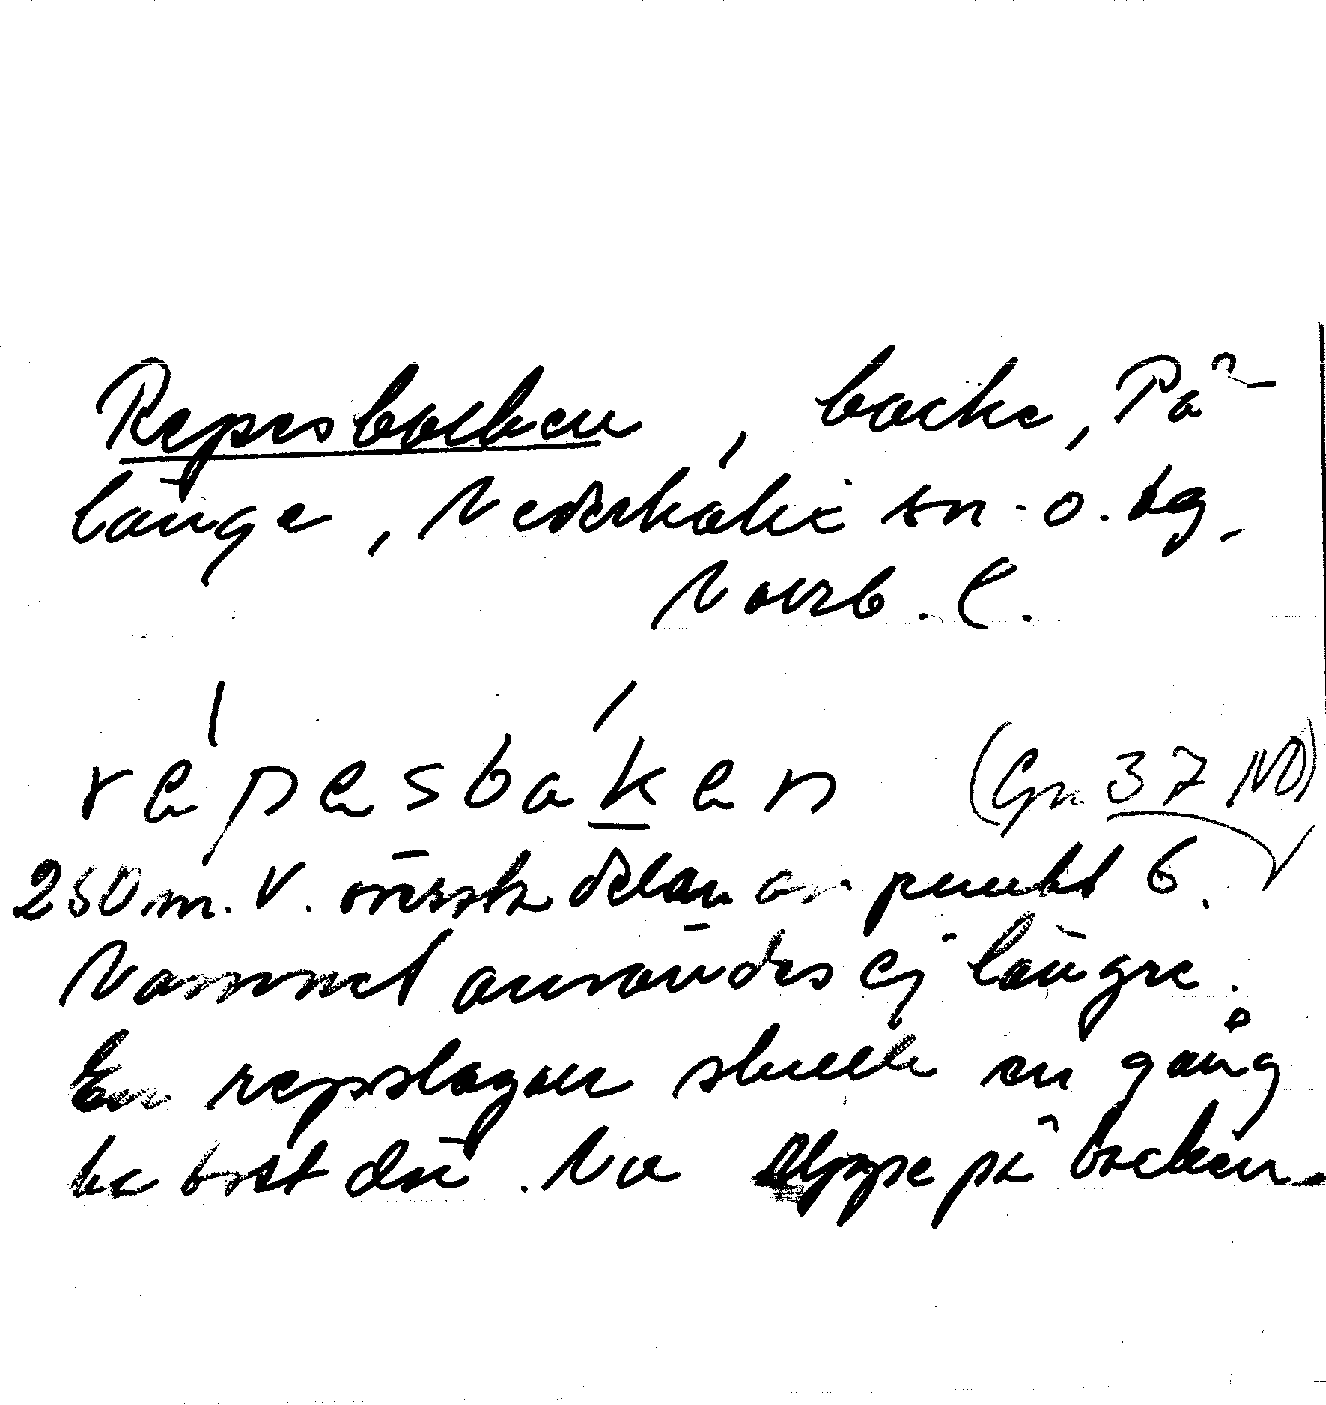 Repesbacken, backe, På-
länge, Nederkalix sn. o. tg,
Norrb. l.
répesbáken (Gr 37 NO)
250 m. V. översta delen av punkt 6.
Namnet användes ej längre.
En repslagare skulle en gång
ha bott där. Nu på backen.